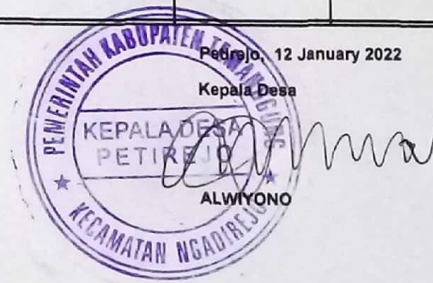 Petirejo, 12 January 2022
Kepala Desa
PEMERINTAH KABUPATEN TEMANGGUNG
KEPALA DESA
PETIREJO
KECAMATAN NGADIREJO
ALWIYONO